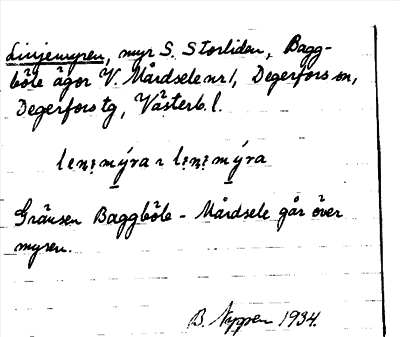 Linjemyren, myr S. Storlidan, Bagg-
böle ägor V. Mårdsele nr 1, Degerfors sn,
Degerfors tg, Västerb. l.
Gränsen Baggböle - Mårdsele går över
myren.
B. Nyppen 1934.